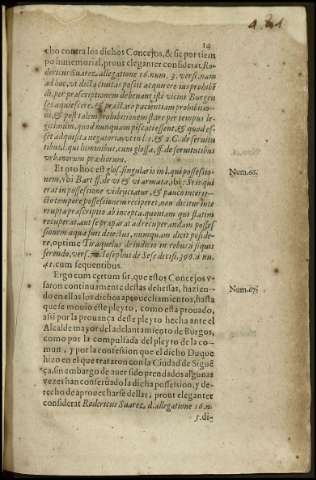 14
cho contra los dichos Concejos, & si por tiem
po inmemorial, prout eleganter considerat Ro
dericus Suarez allegatione 16. num. 3. vers. nam
ad hoc, vt dicta ciuitas possit acquirere ius prohibē
di per praescriptionem debeant iste vicini Burgen
ses aquiescere, & praestare pacientiam prohibitio
ni, & post talem prohibitionem stare per tempus le
gitimum, quod nunquam piscati essent, & quod es
set adquisita negatoria,
tibus l. qui luminibus, cum glossa, ff. de seruitutibus
vrbanorum praediorum.
Et otro hoc est glos. singularis in l. qui possessio
nem, vbi Bart. ff. de vi & vi armata, ibi, Si in qui
erat in possessione videiectatur, & pauco interie
cto tempore possessionem reciperet, non dicitur inte
rrupta praescriptio ab incepta, quem qui statim
recuperat, aut se praeparat ad recuperandam posses
sionem aqua fuit deiectus, nunquam dicit posside
re, optime Tiraquelus de iudicio in rebus
ferendo, vers. Iosephus de Sese decis. 390. à nu.
41. cum sequentibus.
Ergo cum certum sit, que estos Concejos v
saron continuamente destas dehessas, hazien
do en ellas los dichos aprouechamientos, hasta
que se mouio este pleyto, como está prouado,
assi por la prouança deste pleyto hecha ante el
Alcalde mayor del adelantamiento de Burgos,
como por la compulsada del pleyto de la co-
mun, y por la confession que el dicho Duque
hizo en el que trataron con la Ciudad de Sigue
ça, sin embargo de auer sido prendados algunas
vezes han conseruado la dicha possesion, y de-
recho de aprouecharse dellas, prout eleganter
considerat Rodericus Suarez, d. allegatione 16. n.
5. di-
Num. 66.
Num. 67.